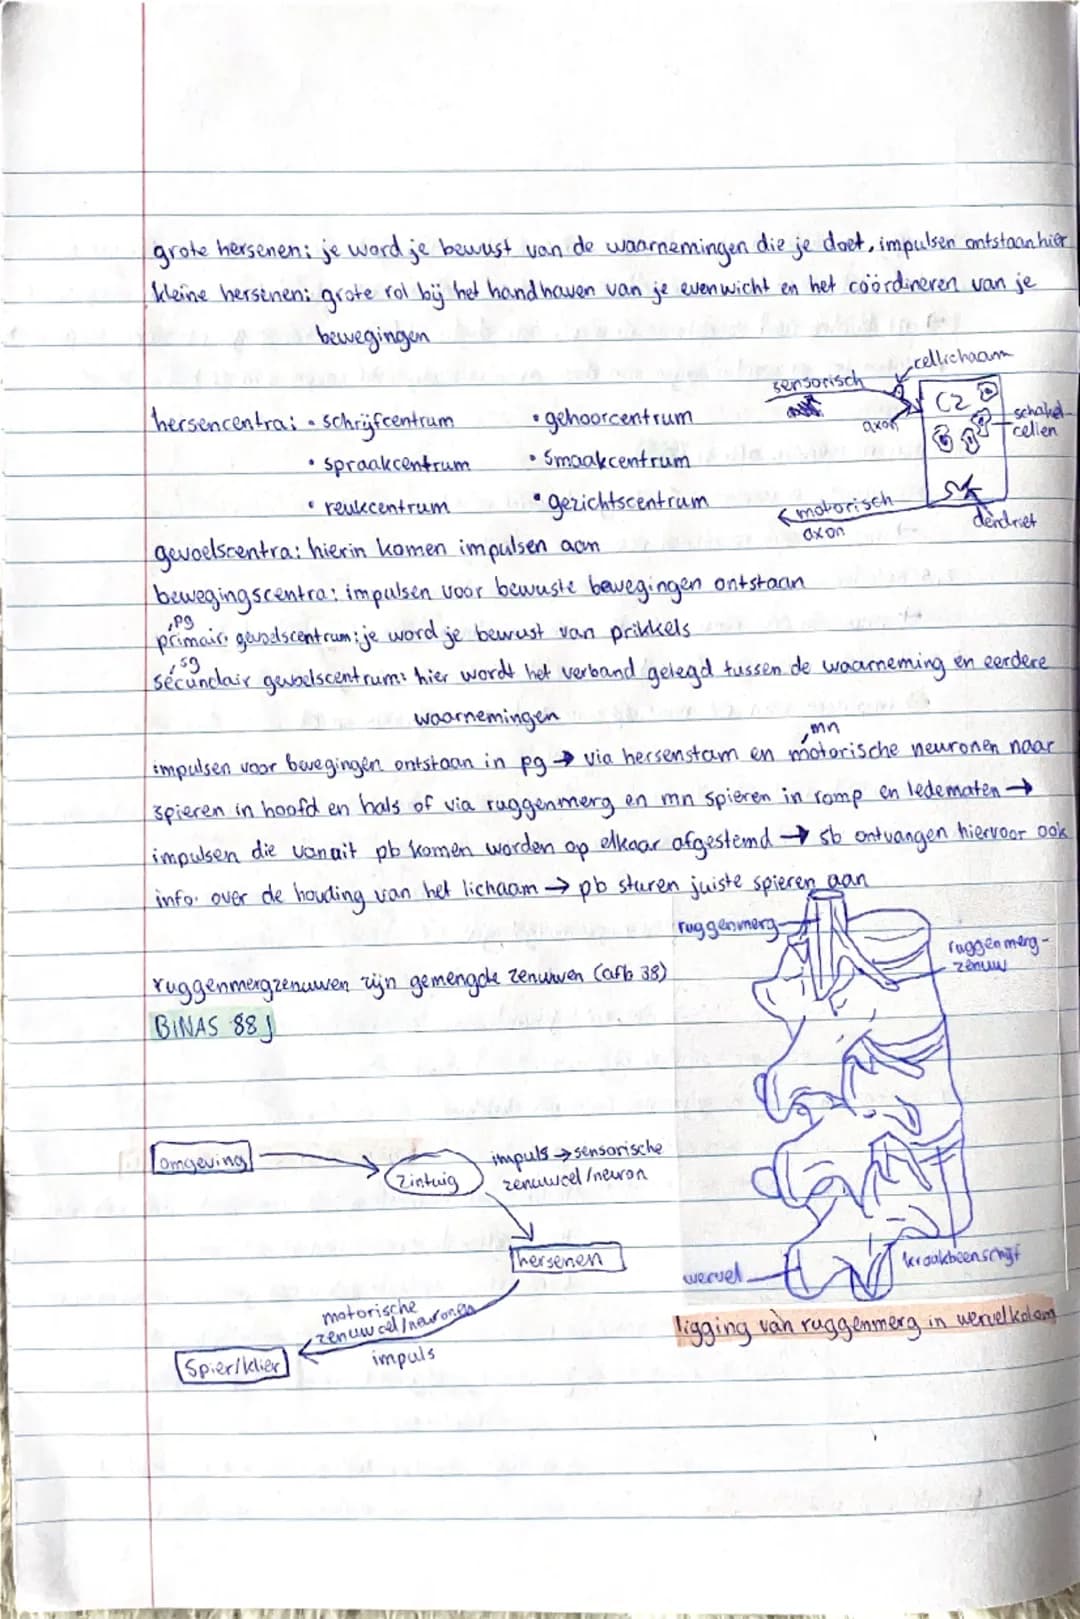 grote hersenen: je word je bewust van de waarnemingen die je doet, impulsen ontstaan hier
kleine hersenen: grote rol bij het handhaven van je evenwicht en het coördineren van je
bewegingen
hersencentra: • schrijfcentrum • gehoorcentrum
• spraakcentrum • smaakcentrum
• reukcentrum • gezichtscentrum
sensorisch
cellichaam
axon
CZ
schakel-
cellen
motorisch
axon
gevoelscentra: hierin komen impulsen aan
bewegingscentra: impulsen voor bewuste bewegingen ontstaan
, pg
primair gevoelscentrum: je word je bewust van prikkels
, sg
secundair gevoelscentrum: hier wordt het verband gelegd tussen de waarneming en eerdere
waarnemingen
, mn
impulsen voor bewegingen ontstaan in pg → via hersenstam en motorische neuronen naar
spieren in hoofd en hals of via ruggenmerg en mn spieren in romp en ledematen →
impulsen die vanuit pb komen worden op elkaar afgestemd → sb ontvangen hiervoor ook
info. over de houding van het lichaam → pb sturen juiste spieren aan
ruggenmerg
ruggenmerg-
zenuw
ruggenmergzenuwen zijn gemengde zenuwen (afb 38)
BINAS 88 J
omgeving
zintuig
impuls → sensorische
zenuwcel/neuron
hersenen
motorische
zenuwcel/neuronen
impuls
Spier/klier
wervel
kraakbeenschijf
ligging van ruggenmerg in wervelkolom